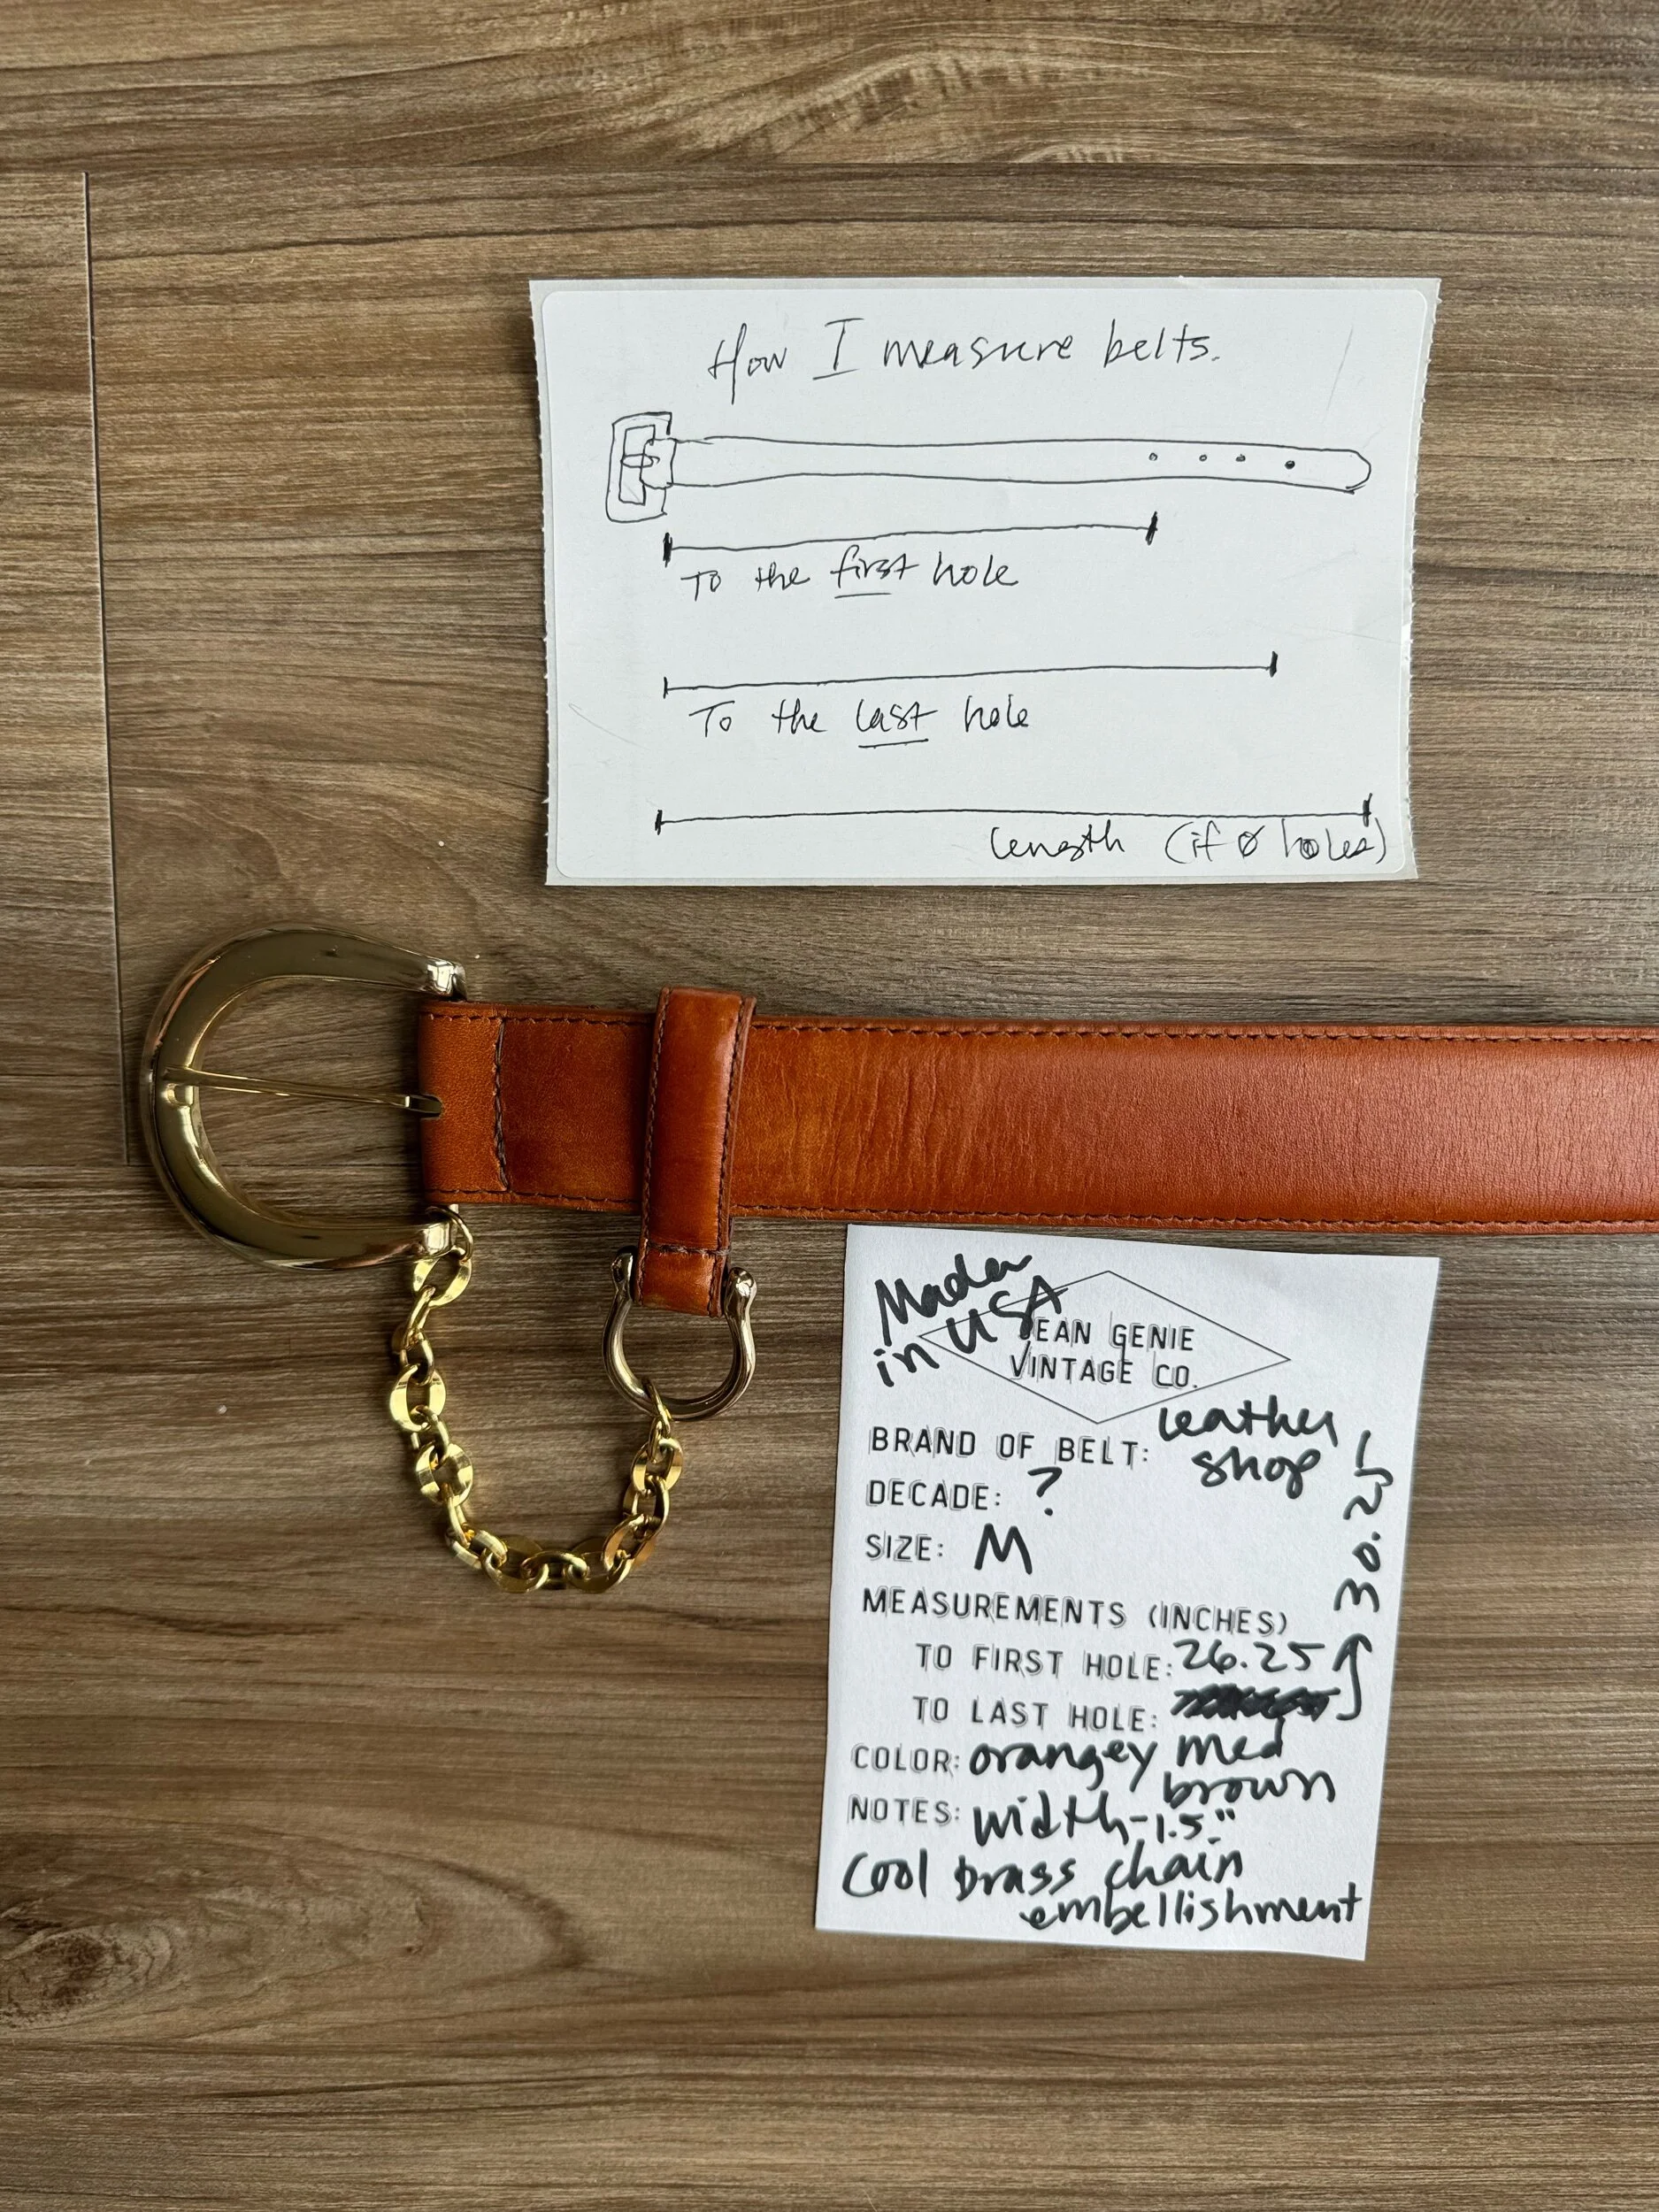 How I measure belts.
To the first hole
To the last hole
length (if 0 holes)
Made in
in USA
JEAN GENIE
VINTAGE CO.
BRAND OF BELT: Leather
shop
DECADE: ?
SIZE: M
MEASUREMENTS (INCHES)
TO FIRST HOLE: 26.25
TO LAST HOLE:
30.25
COLOR: orangey med
brown
NOTES: width-1.5"
Cool brass chain
embellishment